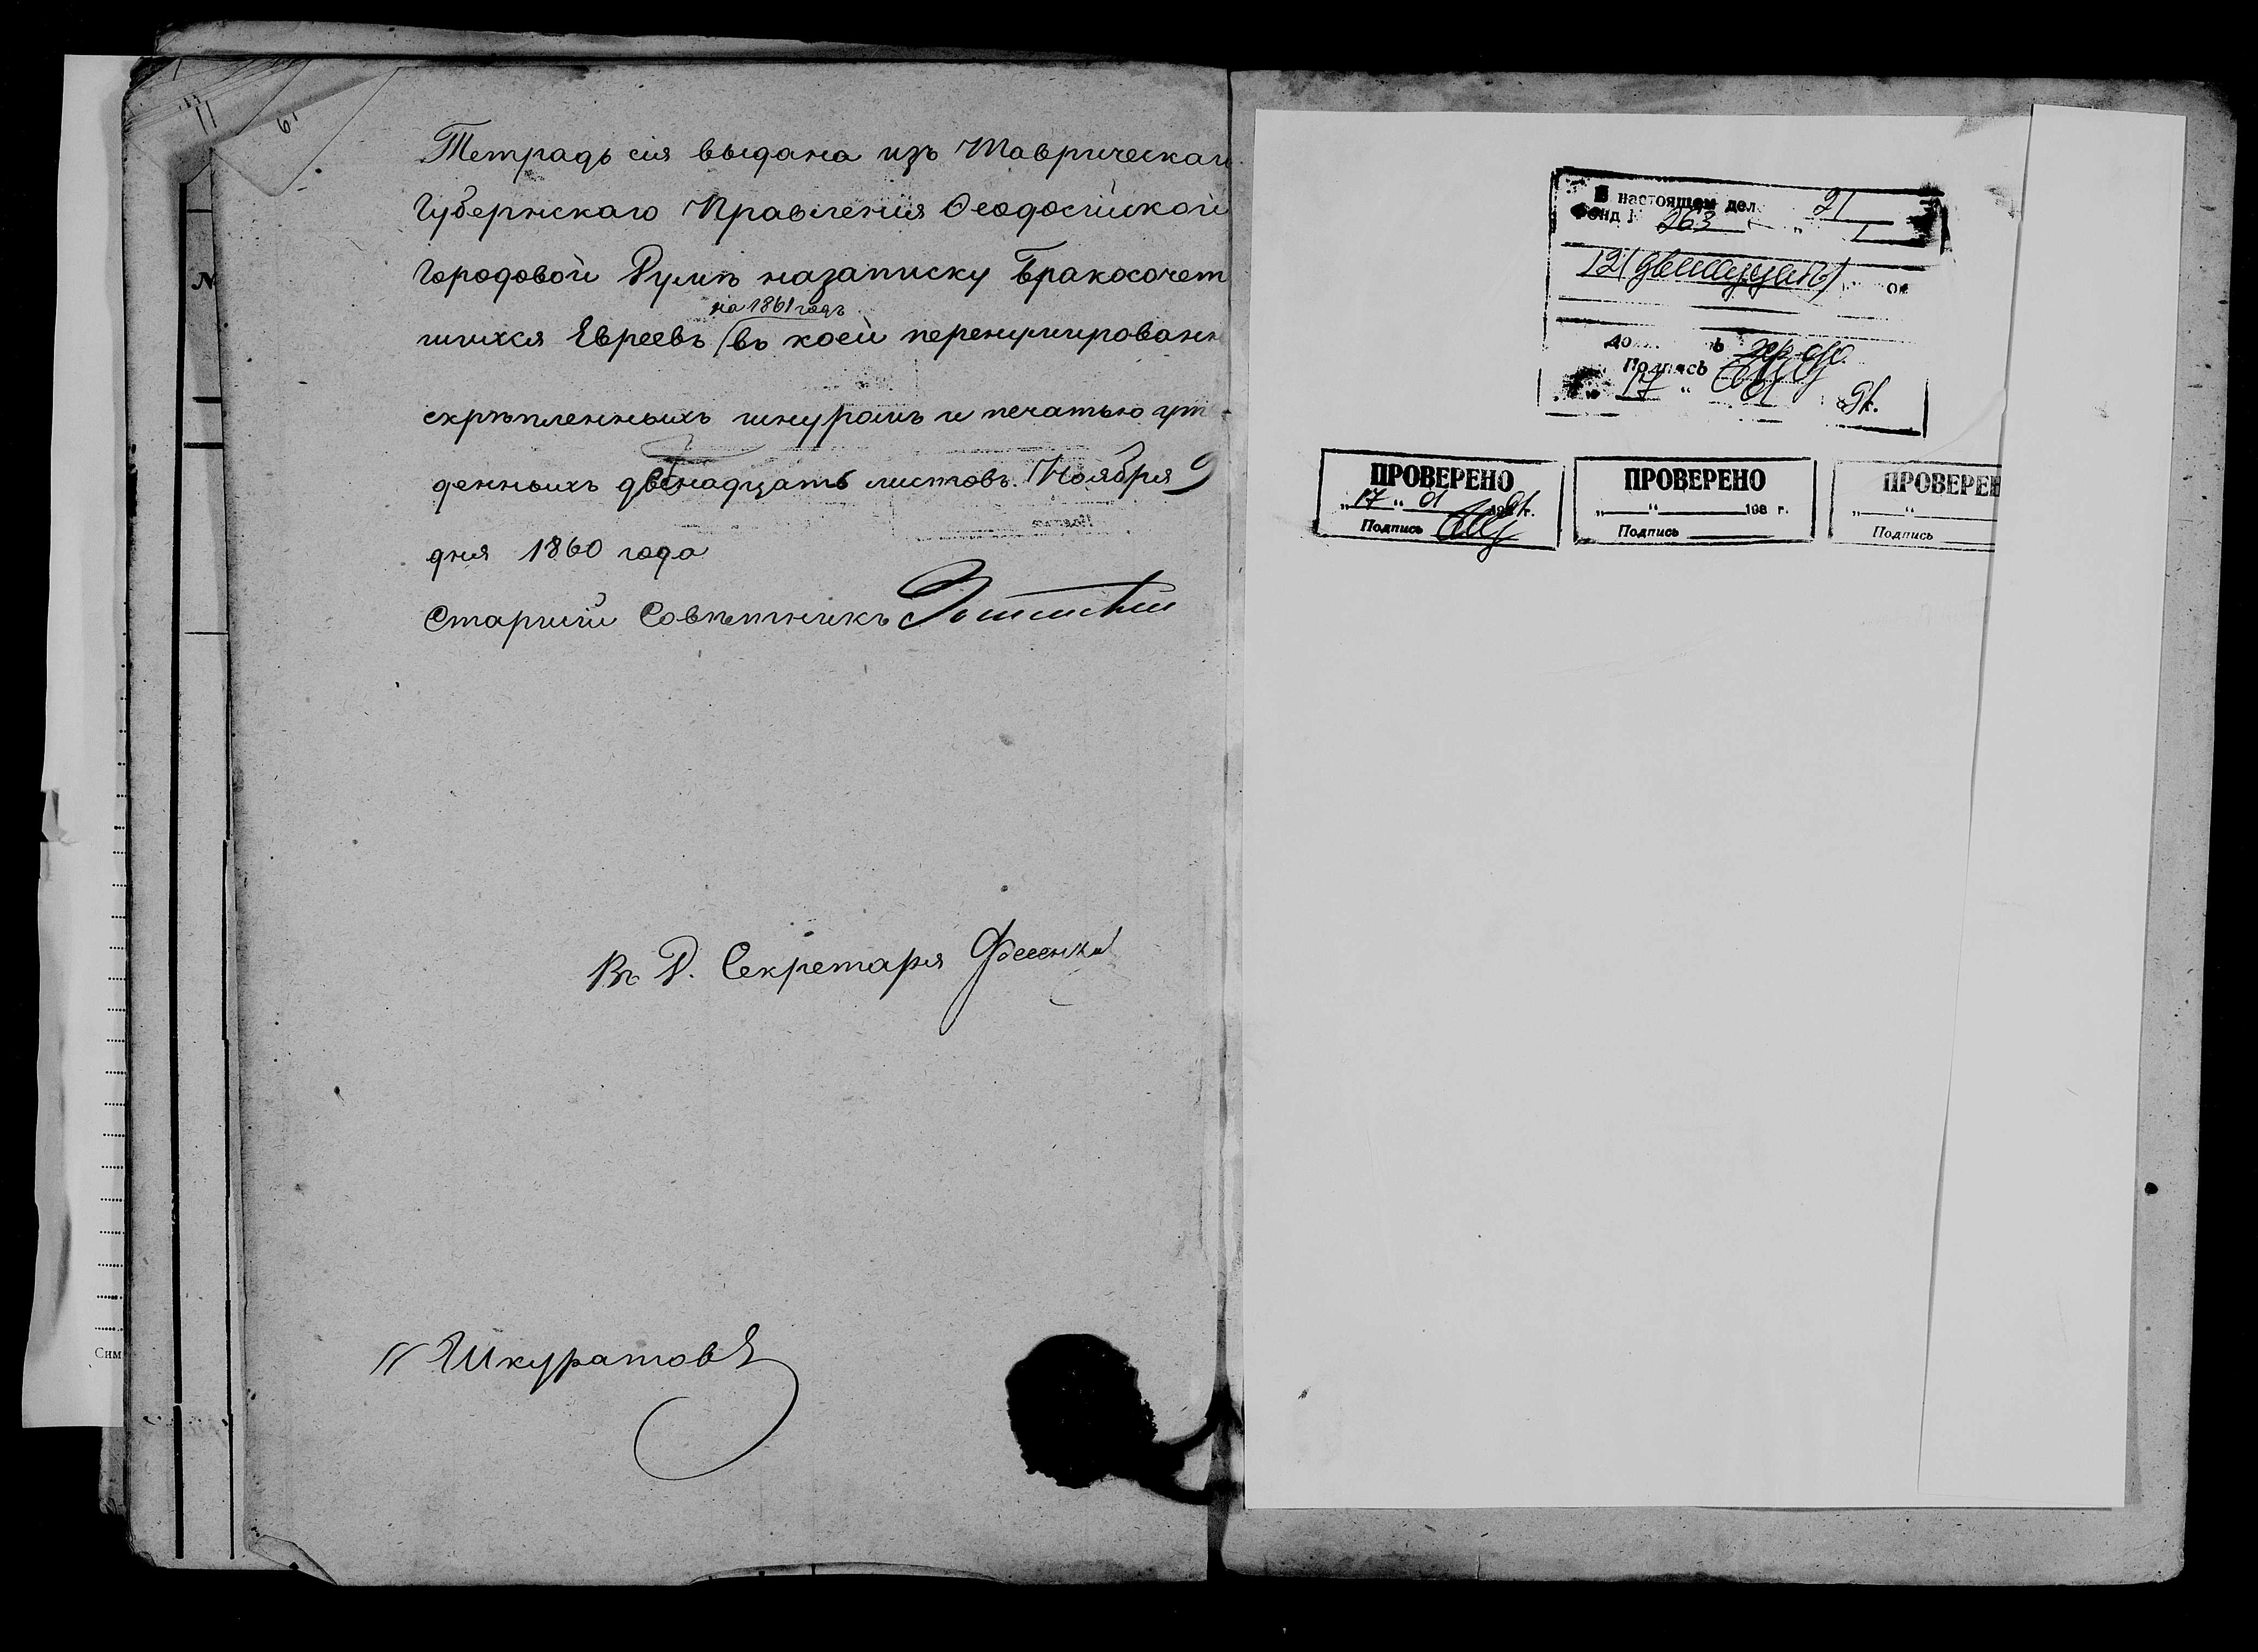 Тетрадь сія выдана изъ Таврическаго
Губернскаго Правленія Ѳеодосійской
Городовой Думѣ назаписку бракосочет
шихся Евреевъ въ коей перенумированн
на 1861 годъ
скрѣпленныхъ шнуромъ и печатью ут
денныхъ двенадцать листовъ. Ноября 9
дня 1860 года
Старшій Совѣтникъ
Въ Д. Секретаря
Шкуратовъ
N
11
61
Сим
В настоящем дел 21
Фонд 263
12 (двенадцать)
Подпись
17 01 91г.
ПРОВЕРЕНО
„17“ 01 1991г.
Подпись
ПРОВЕРЕНО
„ “ 198 г.
Подпись
ПРОВЕРЕН
„ “
Подпись